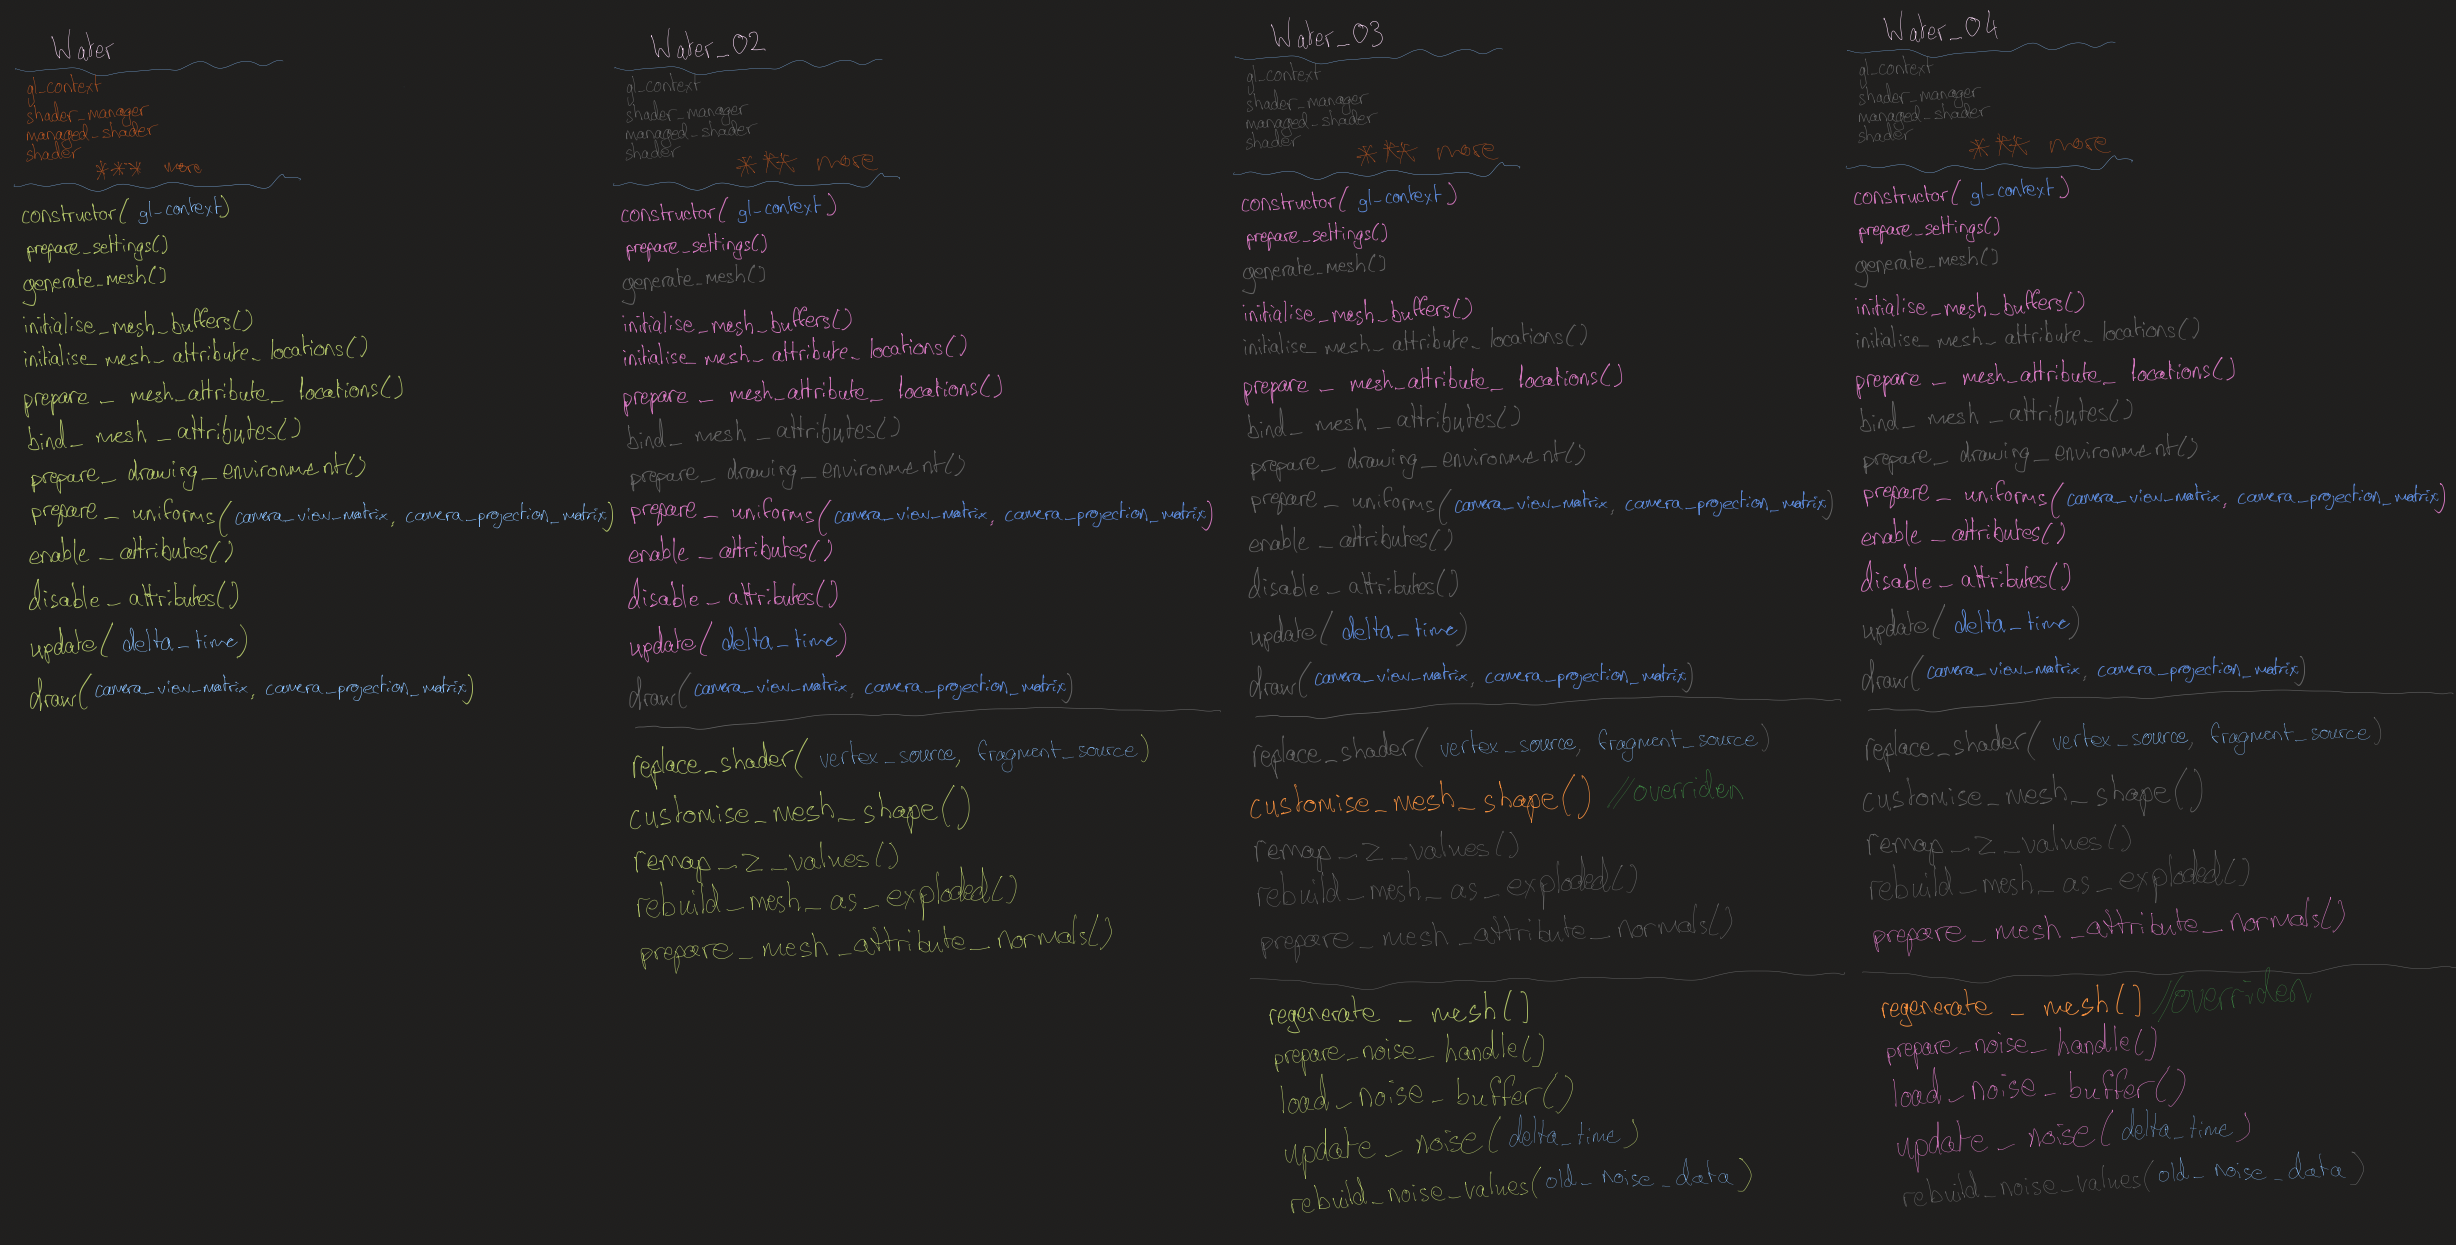 Water
gl_context
shader_manager
managed_shader
shader
*** more
constructor( gl-context)
prepare_settings()
generate_mesh()
initialise_mesh_buffers()
initialise_mesh_attribute_locations()
prepare_mesh_attribute_locations()
bind_mesh_attributes()
prepare_drawing_environment()
prepare_uniforms(camera_view_matrix, camera_projection_matrix)
enable_attributes()
disable_attributes()
update( delta_time)
draw(camera_view_matrix, camera_projection_matrix)
Water_02
gl_context
shader_manager
managed_shader
shader
*** more
constructor( gl-context)
prepare_settings()
generate_mesh()
initialise_mesh_buffers()
initialise_mesh_attribute_locations()
prepare_mesh_attribute_locations()
bind_mesh_attributes()
prepare_drawing_environment()
prepare_uniforms(camera_view_matrix, camera_projection_matrix)
enable_attributes()
disable_attributes()
update( delta_time)
draw(camera_view_matrix, camera_projection_matrix)
replace_shader( vertex_source, fragment_source)
customise_mesh_shape()
remap_z_values()
rebuild_mesh_as_exploded()
prepare_mesh_attribute_normals()
Water_03
gl_context
shader_manager
managed_shader
shader
*** more
constructor( gl-context)
prepare_settings()
generate_mesh()
initialise_mesh_buffers()
initialise_mesh_attribute_locations()
prepare_mesh_attribute_locations()
bind_mesh_attributes()
prepare_drawing_environment()
prepare_uniforms(camera_view_matrix, camera_projection_matrix)
enable_attributes()
disable_attributes()
update( delta_time)
draw(camera_view_matrix, camera_projection_matrix)
replace_shader( vertex_source, fragment_source)
customise_mesh_shape() //overriden
remap_z_values()
rebuild_mesh_as_exploded()
prepare_mesh_attribute_normals()
regenerate_mesh()
prepare_noise_handle()
load_noise_buffer()
update_noise(delta_time)
rebuild_noise_values(old_noise_data)
Water_04
gl_context
shader_manager
managed_shader
shader
*** more
constructor( gl-context)
prepare_settings()
generate_mesh()
initialise_mesh_buffers()
initialise_mesh_attribute_locations()
prepare_mesh_attribute_locations()
bind_mesh_attributes()
prepare_drawing_environment()
prepare_uniforms(camera_view_matrix, camera_projection_matrix)
enable_attributes()
disable_attributes()
update( delta_time)
draw(camera_view_matrix, camera_projection_matrix)
replace_shader( vertex_source, fragment_source)
customise_mesh_shape()
remap_z_values()
rebuild_mesh_as_exploded()
prepare_mesh_attribute_normals()
regenerate_mesh() //overriden
prepare_noise_handle()
load_noise_buffer()
update_noise(delta_time)
rebuild_noise_values(old_noise_data)